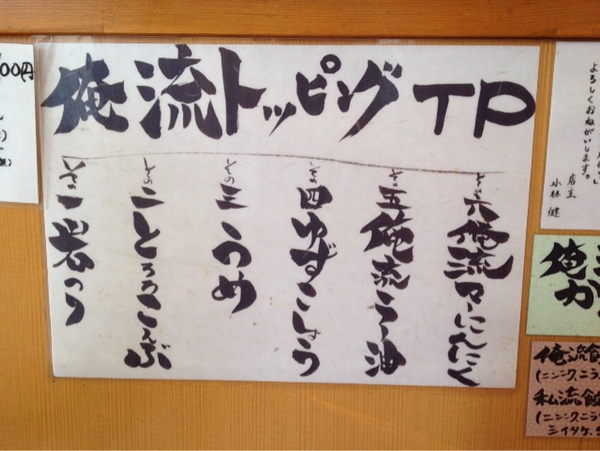 俺流トッピングTP
その一岩のり
その二とろろこんぶ
その三うめ
その四ゆずこしょう
その五俺流ラー油
その六俺流マーにんにく
00円
よろしくおねがいします。
店主
小林 健
俺
カ
俺流餃
(ニンニク、ニラ
私流餃
(ニンニク、ニラ
シイタケ、